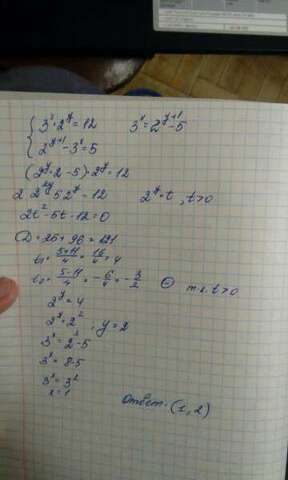 { 3ˣ · 2ʸ = 12    3ˣ = 2ʸ⁺¹ - 5
{ 2ʸ⁺¹ - 3ˣ = 5
(2ʸ · 2 - 5) · 2ʸ = 12
2 · 2²ʸ - 5 · 2ʸ = 12    2ʸ = t, t > 0
2t² - 5t - 12 = 0
D = 25 + 96 = 121
t₁ = (5+11)/4 = 16/4 = 4
t₂ = (5-11)/4 = -6/4 = -3/2    т.к. t > 0
2ʸ = 4
2ʸ = 2², y = 2
3ˣ = 2³ - 5
3ˣ = 8 - 5
x = 1
Ответ. (1, 2)